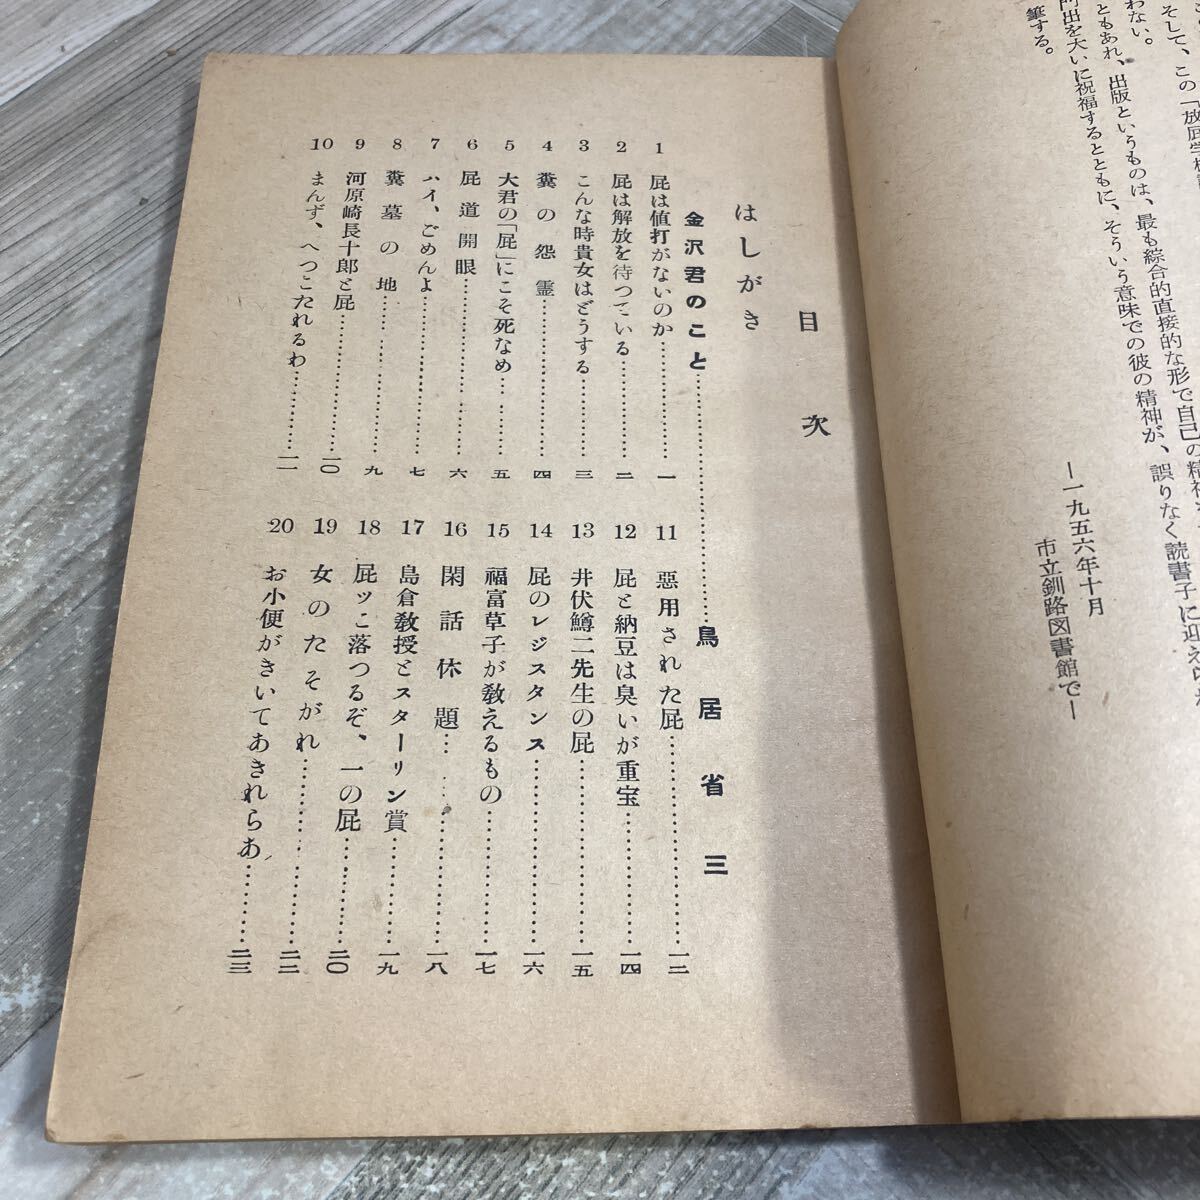 そして、この「放屁学
わない。
ともあれ、出版というものは、最も綜合的直接的な形で自己の精神
門出を大いに祝福するとともに、そういう意味での彼の精神が、誤りなく読書子に迎えら
筆する。
―一九五六年十月
市立釧路図書館で―
目次
はしがき
金沢君のこと…………鳥居省三
1 屁は値打がないのか…………一
2 屁は解放を待つている…………二
3 こんな時貴女はどうする…………三
4 糞の怨霊…………四
5 大君の「屁」にこそ死なめ…………五
6 屁道開眼…………六
7 ハイ、ごめんよ…………七
8 糞墓の地…………九
9 河原崎長十郎と屁…………一〇
10 まんず、へつこたれるわ…………一一
11 悪用された屁…………一二
12 屁と納豆は臭いが重宝…………一四
13 井伏鱒二先生の屁…………一五
14 屁のレジスタンス…………一六
15 福富草子が教えるもの…………一七
16 閑話休題…………一八
17 島倉教授とスターリン賞…………一九
18 屁ッこ落つるぞ、一の屁…………二〇
19 女のたそがれ…………二二
20 お小便がきいてあきれらあ…………二三